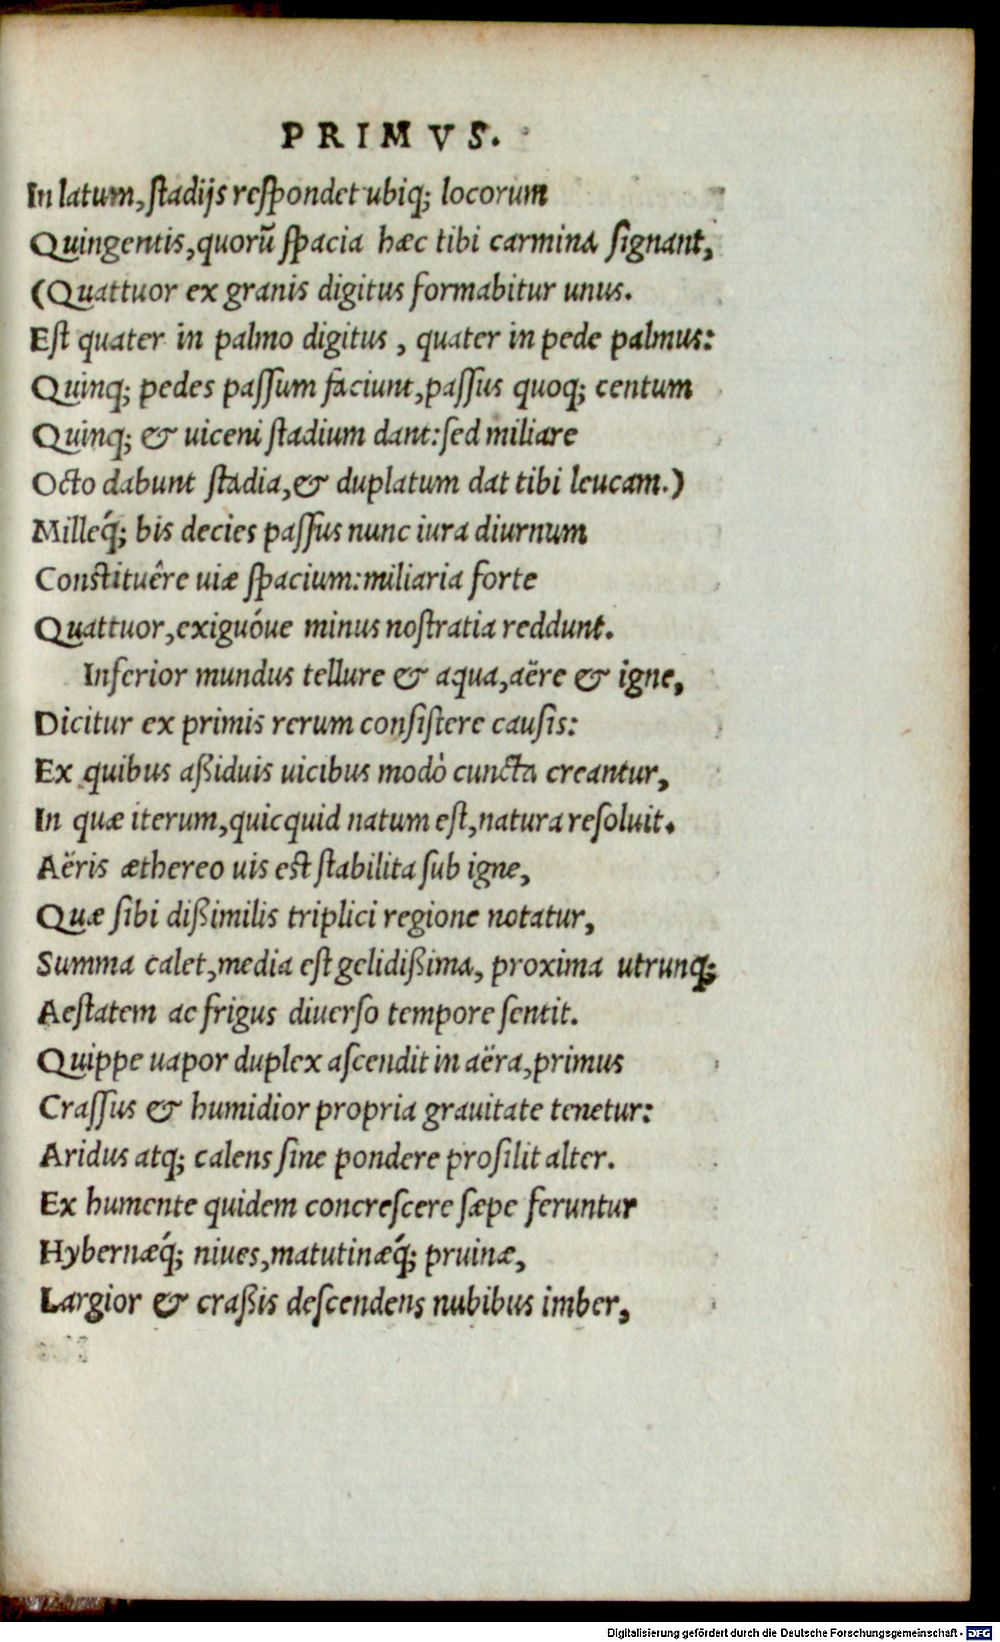 PRIMVS.
In latum, ſtadijs reſpondet ubiq; locorum
Quingentis, quorũ ſpacia hæc tibi carmina ſignant,
(Quattuor ex granis digitus formabitur unus.
Eſt quater in palmo digitus, quater in pede palmus:
Quinq; pedes paſſum faciunt, paſſus quoq; centum
Quinq; & uiceni ſtadium dant: ſed miliare
Octo dabunt ſtadia, & duplatum dat tibi leucam.)
Milleq́; bis decies paſſus nunc iura diurnum
Conſtituêre uiæ ſpacium: miliaria forte
Quattuor, exiguóue minus noſtratia reddunt.
Inferior mundus tellure & aqua, aëre & igne,
Dicitur ex primis rerum conſiſtere cauſis:
Ex quibus aßiduis uicibus modò cuncta creantur,
In quæ iterum, quicquid natum eſt, natura reſoluit.
Aëris æthereo uis eſt ſtabilita ſub igne,
Quæ ſibi dißimilis triplici regione notatur,
Summa calet, media eſt gelidißima, proxima utrunq;
Aeſtatem ac frigus diuerſo tempore ſentit.
Quippe uapor duplex aſcendit in aëra, primus
Craſſus & humidior propria grauitate tenetur:
Aridus atq; calens ſine pondere proſilit alter.
Ex humente quidem concreſcere ſæpe feruntur
Hybernæq́; niues, matutinæq́; pruinæ,
Largior & craßis deſcendens nubibus imber,
Digitalisierung gefördert durch die Deutsche Forschungsgemeinschaft - DFG